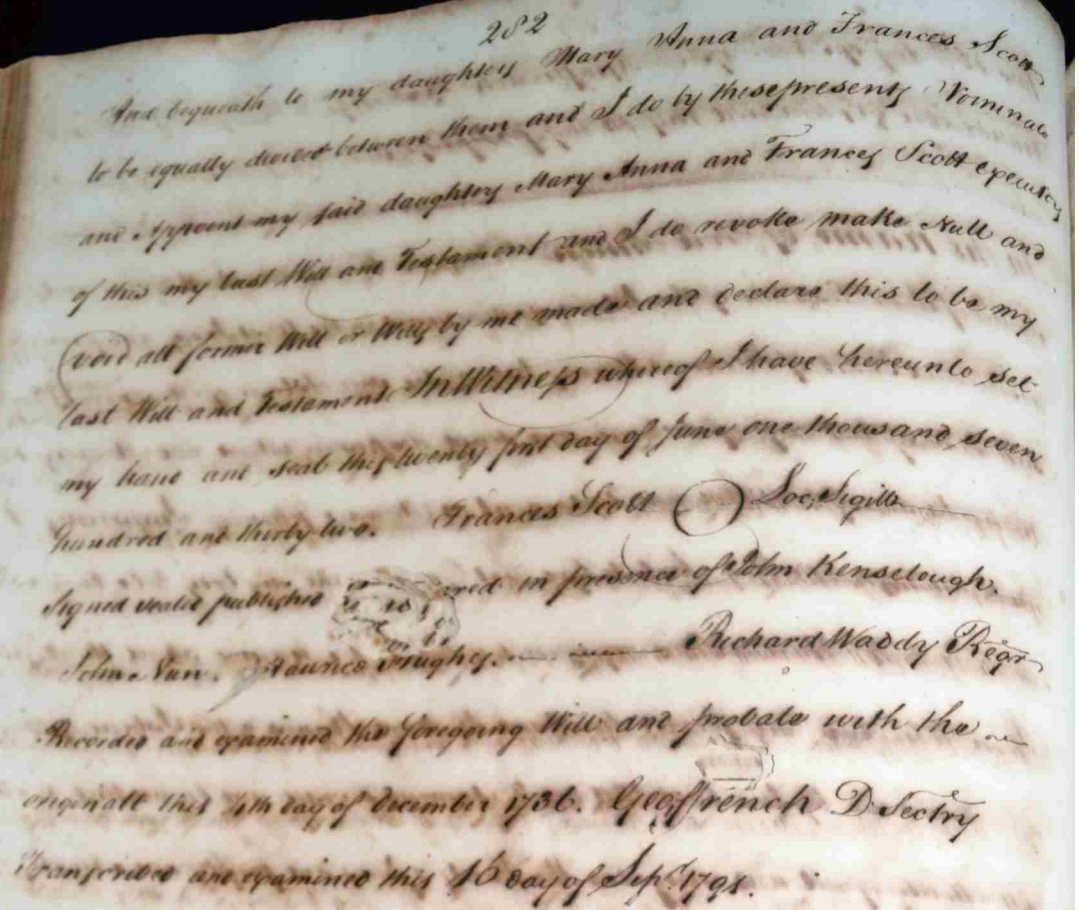 282
And bequeath to my daughters Mary Anna and Frances Scott
to be equally devided between them and I do by these presents Nominate
and Appoint my said daughters Mary Anna and Frances Scott executors
of this my last Will and Testament and I do revoke make Null and
void all former Will or Wills by me made and declare this to be my
last Will and Testament In Witness whereof I have hereunto set
my hand and seal this twenty first day of June one thousand seven
hundred and thirty two. Frances Scott Loc, Sigilli
Signed sealed published in presence of John Kenselough.
John Nun. Hughes. Richard Waddy Regr
Recorded and examined the foregoing Will and probate with the
originall this 4th day of December 1736. Geo ffrench D Sectry
Transcribed and examined this 16 day of Sept. 1791.